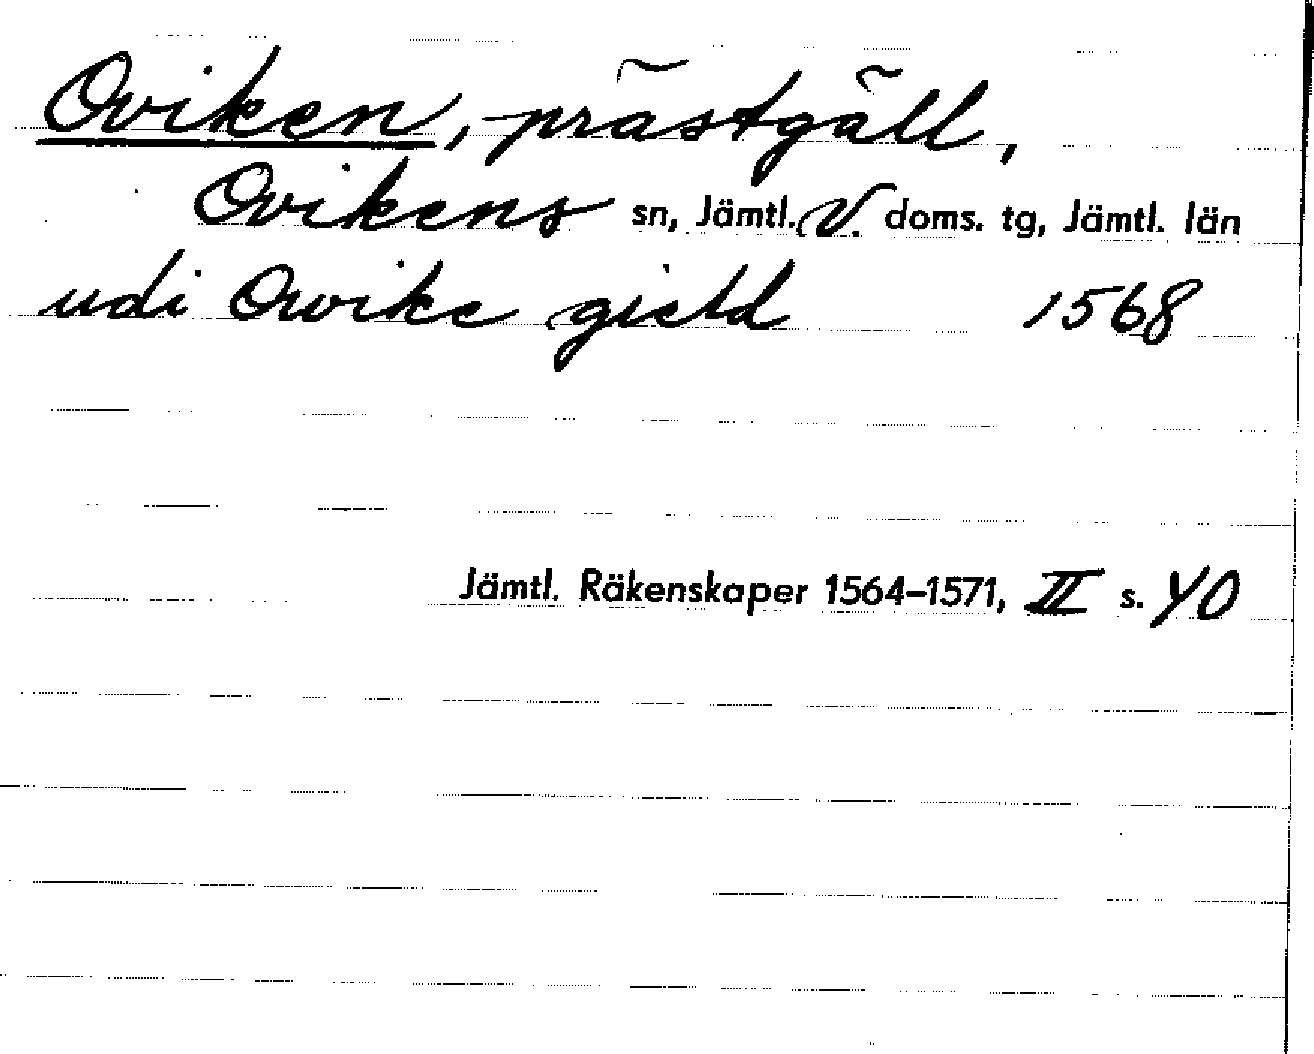 Oviken, prästgäll,
Ovikens sn, Jämtl. V. doms. tg, Jämtl. län
udi Owike gield 1568
Jämtl. Räkenskaper 1564–1571, II s. 40